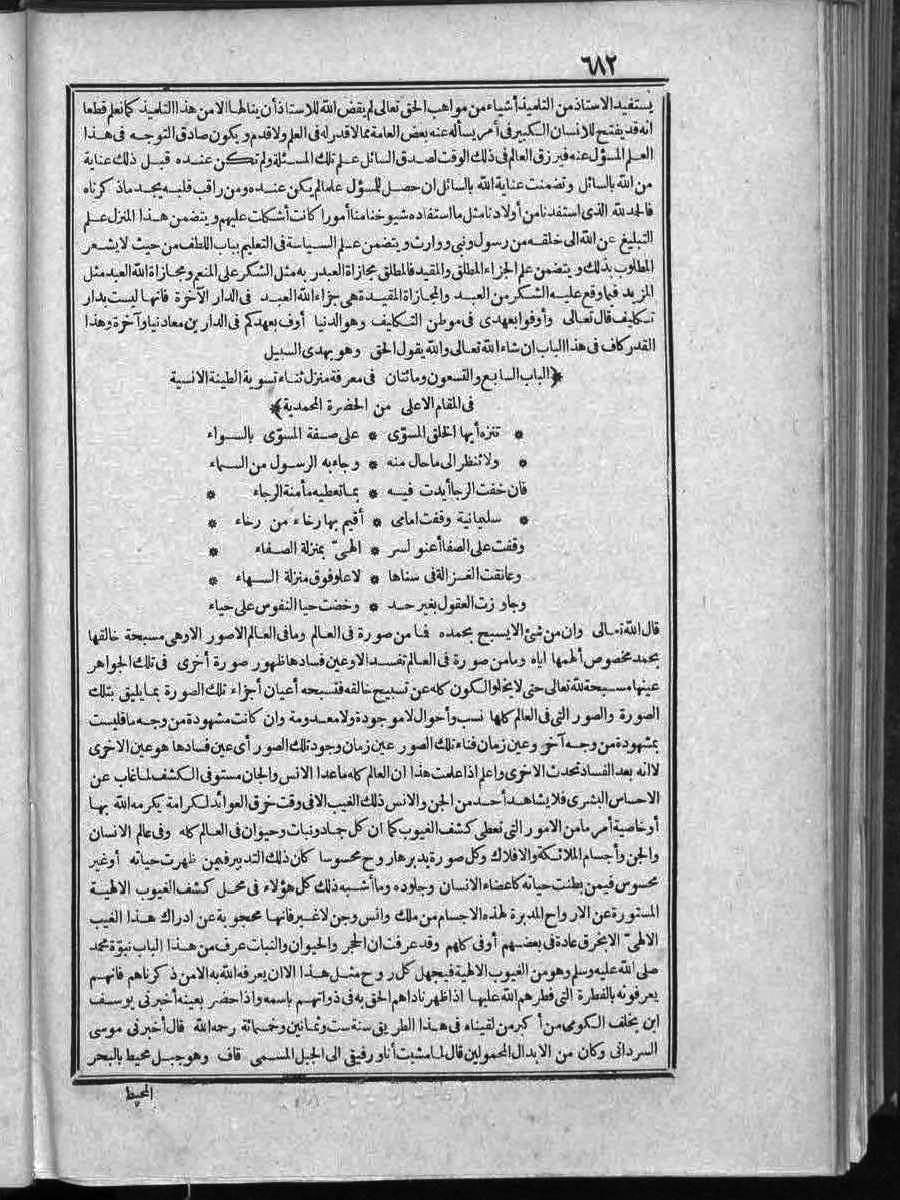 ٦٨٢
يستفيد الاستاذ من التلميذ أشياء من مواهب الحق تعالى لم يقض الله للاستاذ أن ينالها الا من هذا التلميذ كما نعلم قطعا
انه قد يفتح للانسان الكبير في أمر يسأله عنه بعض العامة مما لا قدر له في العلم ولا قدم ويكون صادق التوجه في هذا
العلم المسؤل عنه فيرزق العالم في ذلك الوقت لصدق السائل علم تلك المسئلة ولم تكن عنده قبل ذلك عناية
من الله بالسائل وتضمنت عناية الله بالسائل ان حصل للمسؤل علما لم يكن عنده ومن راقب قلبه يجد ما ذكرناه
فالحمد لله الذي استفدنا من أولادنا مثل ما استفاده شيوخنا منا أمورا كانت أشكلت عليهم ويتضمن هذا المنزل علم
التبليغ عن الله الى خلقه من رسول ونبي ووارث ويتضمن علم السياسة في التعليم بباب اللطف من حيث لا يشعر
المطلوب بذلك ويتضمن علم الجزاء المطلق والمقيد فالمطلق مجازاة العبد ربه مثل الشكر على المنعم ومجازاة الله العبد مثل
المزيد فيما وقع عليه الشكر من العبد والمجازاة المقيدة هي جزاء الله العبد في الدار الآخرة فانها ليست بدار
تكليف قال تعالى وأوفوا بعهدي في موطن التكليف وهو الدنيا أوف بعهدكم في الدارين معاد نيا وآخرة وهذا
القدر كاف في هذا الباب ان شاء الله تعالى والله يقول الحق وهو يهدي السبيل
﴿الباب السابع والتسعون ومائتان في معرفة منزل ثناء تسوية الطينة الانسية
في المقام الاعلى من الحضرة المحمدية﴾
* تنزه أيها الخلق المسوّى * على صفة المسوّى بالسواء
* ولا تنظر الى ما حال منه * وجاء به الرسول من السماء
فان خفت الرجا أيدت فيه * بما تعطيه مأمنة الرجاء *
* سليمانية وقفت امامي * أقيم بها رخاء من رخاء *
وقفت على الصفا أعنو لسر * الهيّ بمنزلة الصفاء *
وعانقت الغزالة في سناها * لاعلو فوق منزلة السهاء *
وجاوزت العقول بغير حد * وخضت حيا النفوس على حياء
قال الله تعالى وان من شئ الا يسبح بحمده فما من صورة في العالم وما في العالم الا صور الا وهي مسبحة خالقها
بحمد مخصوص ألهمها اياه وما من صورة في العالم تفسد الا وعين فسادها ظهور صورة أخرى في تلك الجواهر
عينها مسبحة لله تعالى حتى لا يخلو الكون كله عن تسبيح خالقه فتسبحه أعيان أجزاء تلك الصورة بما يليق بتلك
الصورة والصور التي في العالم كلها نسب وأحوال لا موجودة ولا معدومة وان كانت مشهودة من وجه ما فليست
بمشهودة من وجه آخر وعين زمان فناء تلك الصور عين زمان وجود تلك الصور أي عين فسادها هو عين الاخرى
لا انه بعد الفساد تحدث الاخرى واعلم اذا علمت هذا ان العالم كله ما عدا الانس والجان مستوفي الكشف لما غاب عن
الاحساس البشرى فلا يشاهد أحد من الجن والانس ذلك الغيب الا في وقت خرق العوائد لكرامة يكرمه الله بها
أو خاصية أمر ما من الامور التي تعطي كشف الغيوب كما ان كل جماد ونبات وحيوان في العالم كله وفي عالم الانسان
والجن وأجسام الملائكة والافلاك وكل صورة يدبرها روح محسوسا كان ذلك التدبير فيمن ظهرت حياته أو غير
محسوس فيمن بطنت حياته كاعضاء الانسان وجلوده وما أشبه ذلك كل هؤلاء في محل كشف الغيوب الالهية
المستورة عن الارواح المدبرة لهذه الاجسام من ملك وانس وجن لا غير فانها محجوبة عن ادراك هذا الغيب
الالهيّ الا بخرق عادة في بعضهم أو في كلهم وقد عرفت ان الحجر والحيوان والنبات عرف من هذا الباب نبوّة محمد
صلى الله عليه وسلم وهو من الغيوب الالهية فيجهل كل روح مثل هذا الا ان يعرفه الله به الا من ذكرناهم فانهم
يعرفونه بالفطرة التي فطرهم الله عليها اذا ظهر ناداهم الحق به في ذواتهم باسمه واذا حضر بعينه أخبرني يوسف
ابن يخلف الكومي من أكبر من لقيناه في هذا الطريق سنة ست وثمانين وخمسمائة رحمه الله قال أخبرني موسى
السدراني وكان من الابدال المحمولين قال لما مشيت أنا ورفيقي الى الجبل المسمى قاف وهو جبل محيط بالبحر
المحيط